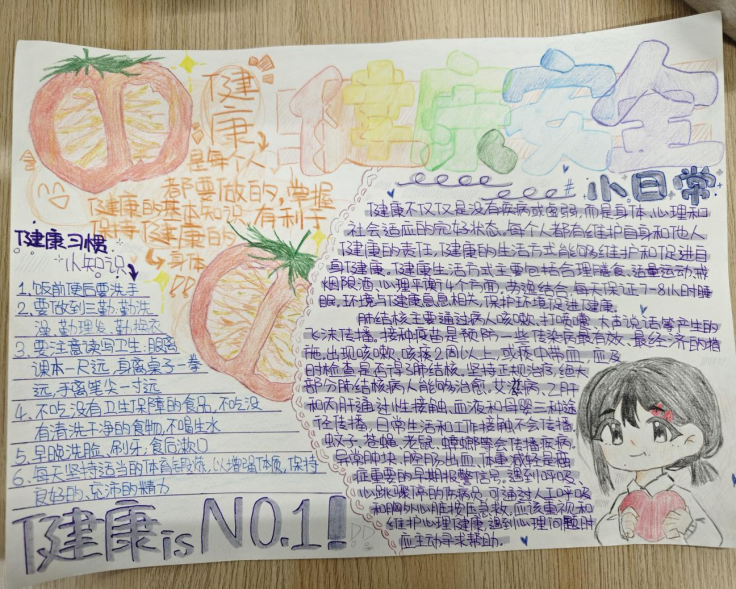 健康安全
健康
是每个人
都要做的,掌握
健康的基本知识,有利于
保持健康的
身体
健康习惯
小知识
1.饭前便后要洗手
2.要做到三勤,勤洗
澡,勤理发,勤换衣
3.要注意读写卫生,眼离
课本一尺远,身离桌子一拳
远,手离笔尖一寸远
4.不吃没有卫生保障的食品,不吃没
有清洗干净的食物,不喝生水
5.早晚洗脸、刷牙,食后漱口
6.每天坚持适当的体育锻炼,以增强体质,保持
良好的、充沛的精力
健康is NO.1!
#小日常
健康不仅仅是没有疾病或虚弱,而是身体、心理和
社会适应的完好状态。每个人都有维护自身和他人
健康的责任,健康的生活方式能够维护和促进自
身健康。健康生活方式主要包括合理膳食、适量运动、戒
烟限酒、心理平衡4个方面,劳逸结合,每天保证7-8小时睡
眠,环境与健康息息相关,保护环境促进健康。
肺结核主要通过病人咳嗽、打喷嚏、大声说话等产生的
飞沫传播。接种疫苗是预防一些传染病最有效、最经济的措
施,出现咳嗽、咳痰2周以上,或痰中带血,应及
时检查是否得了肺结核,坚持正规治疗,绝大
部分肺结核病人能够治愈,艾滋病、乙肝
和丙肝通过性接触、血液和母婴三种途
径传播,日常生活和工作接触不会传播,
蚊子、苍蝇、老鼠、蟑螂等会传播疾病,
异常肿块、腔肠出血、体重减轻是癌
症重要的早期报警信号,遇到呼吸、
心跳骤停的伤病员,可通过人工呼吸
和胸外心脏按压急救,应该重视和
维护心理健康,遇到心理问题时
应主动寻求帮助.